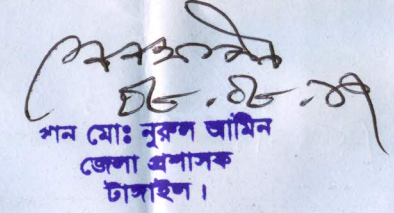 ০৮.০৮.১৭
খান মোঃ নুরুল আমিন
জেলা প্রশাসক
টাঙ্গাইল।